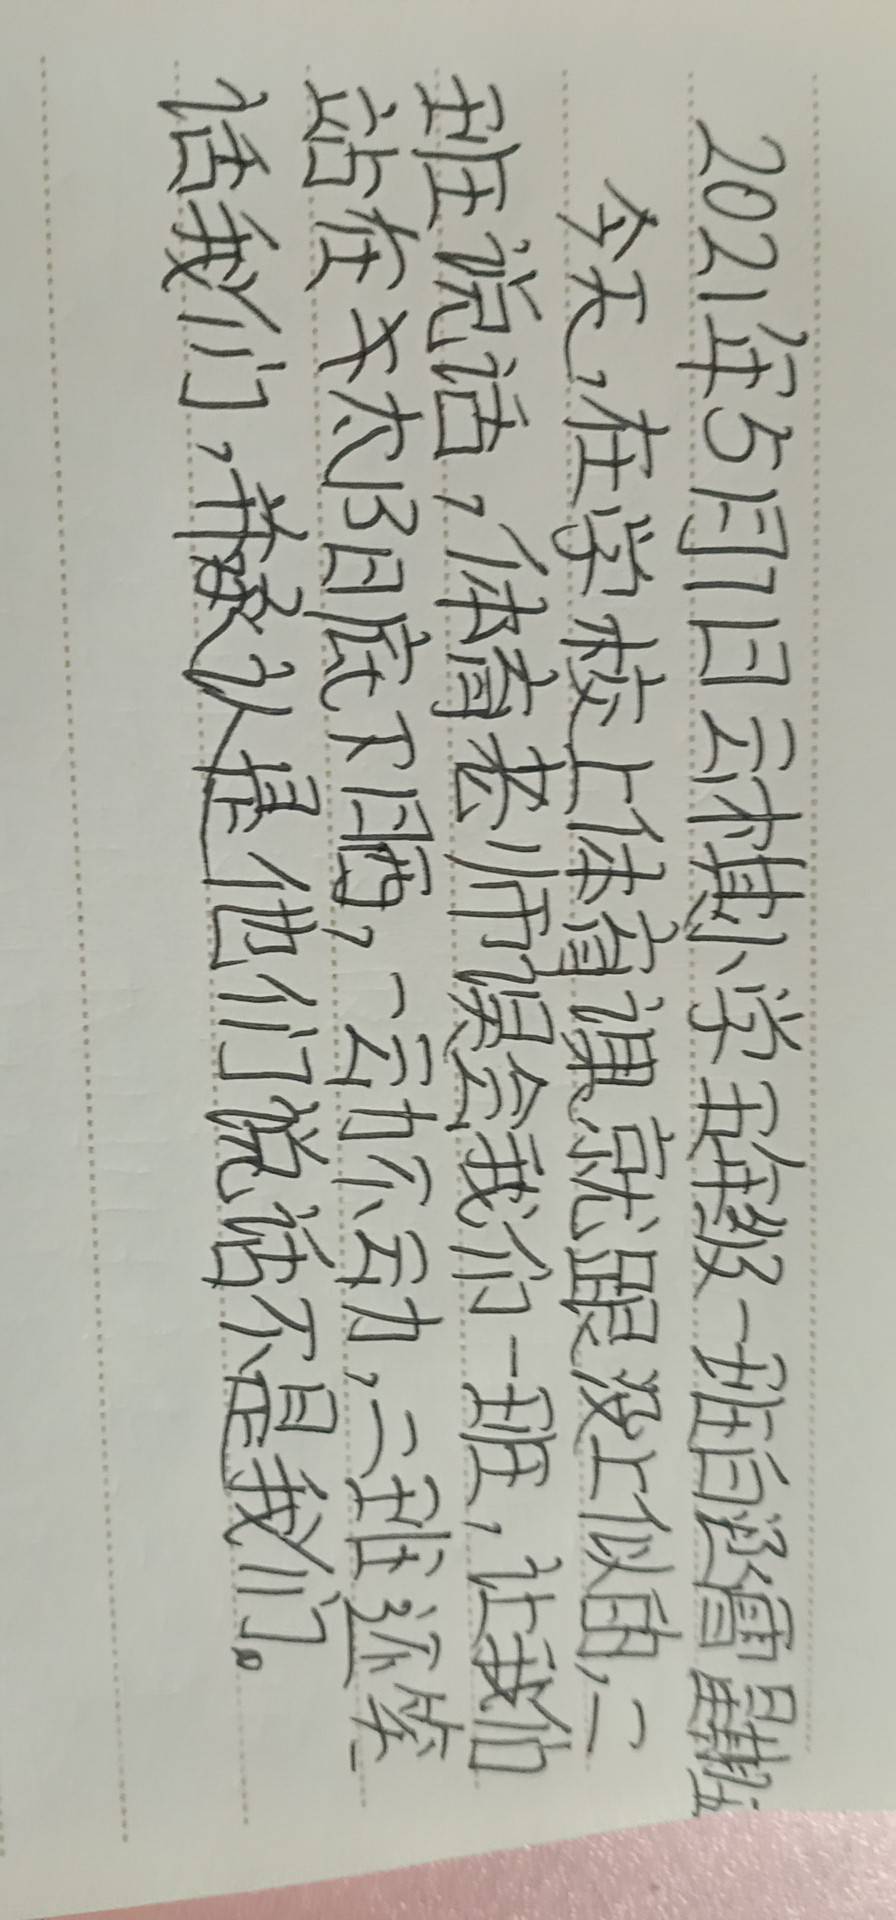 2021年5月7日云林其小学五年级一班白
今天,在学校上体育课就跟没上似的,二
班说话,体育老师误会我们一班,让我们
站在大太阳底下晒,一动不动,二班还笑
话我们,并承认是他们说话不是我们。